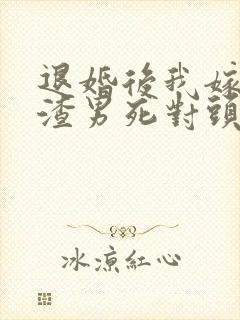 退婚後我嫁
渣男死對頭
冰涼紅心